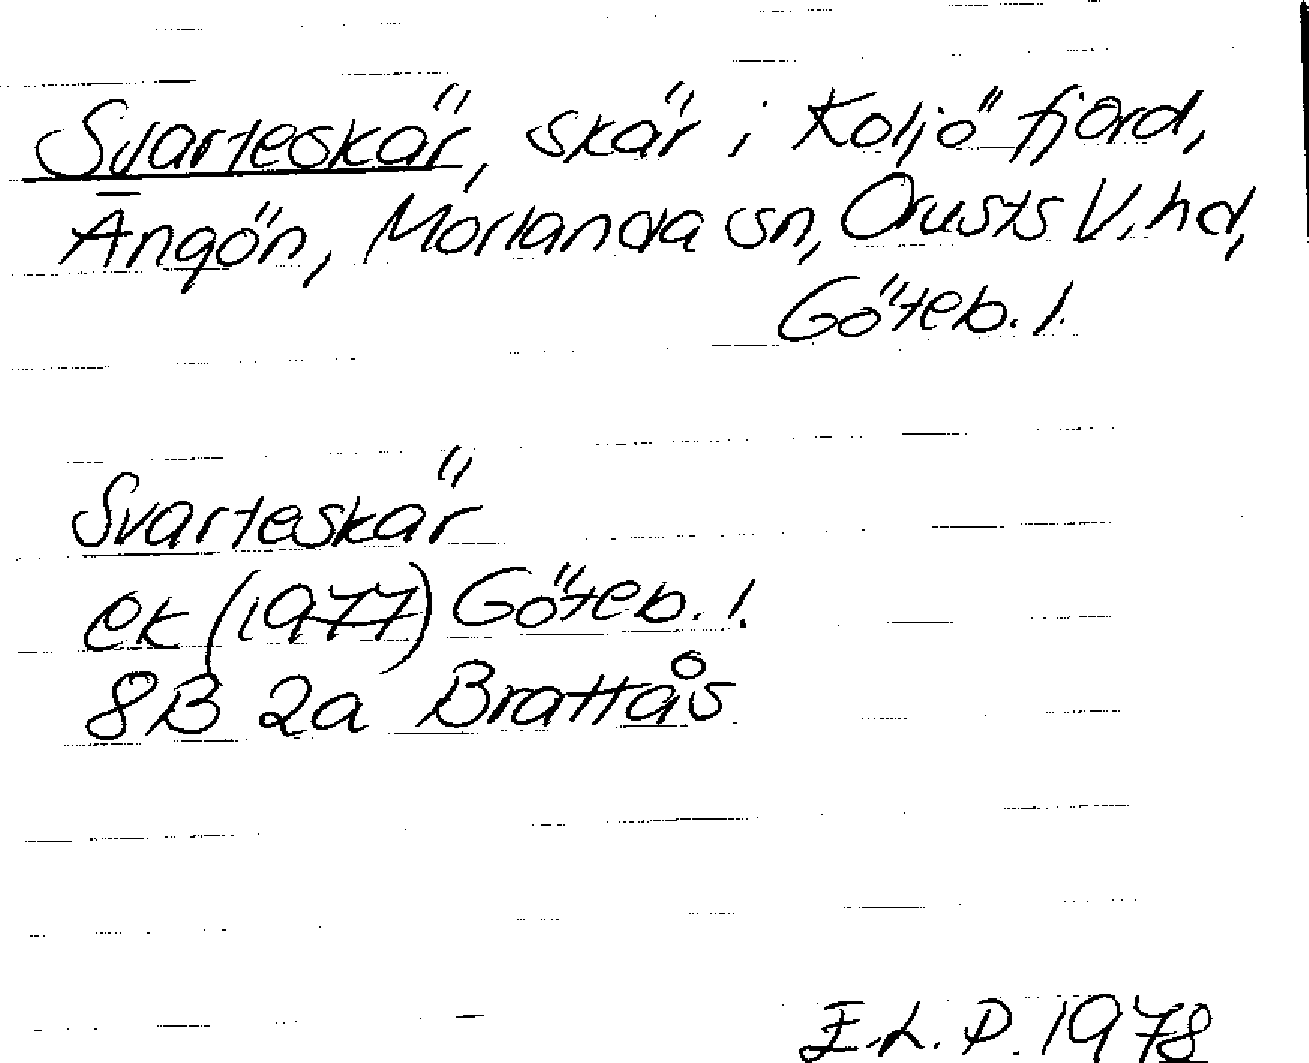 Svarteskär, skär i Koljö fjord,
Ängön, Morlanda sn, Orusts V. hd,
Göteb. l.
Svarteskär
ek (1977) Göteb. l.
8B 2a Brattås
E.L.P. 1978